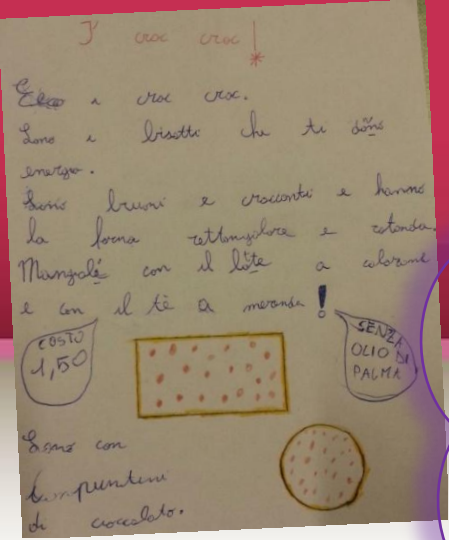 I croc croc!
Ecco i croc croc.
Sono i biscotti che ti dono
energia.
Sono bruni e croccanti e hanno
la forma rettangolare e rotonda.
Mangiale con il late a colazione
e con il tè a merenda!
COSTO
1,50
SENZA
OLIO DI
PALMA
Sono con
puntini
di cioccolato.